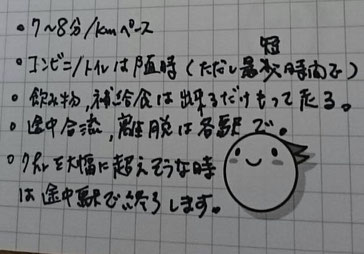 ・7〜8分/kmペース
短
・コンビニ/トイレは随時(ただし最時間で)
・飲み物,補給食は出来るだけもって走る。
・途中合流,離脱は各駅で。
・を大幅に超えそうな時
は途中駅で終了します。